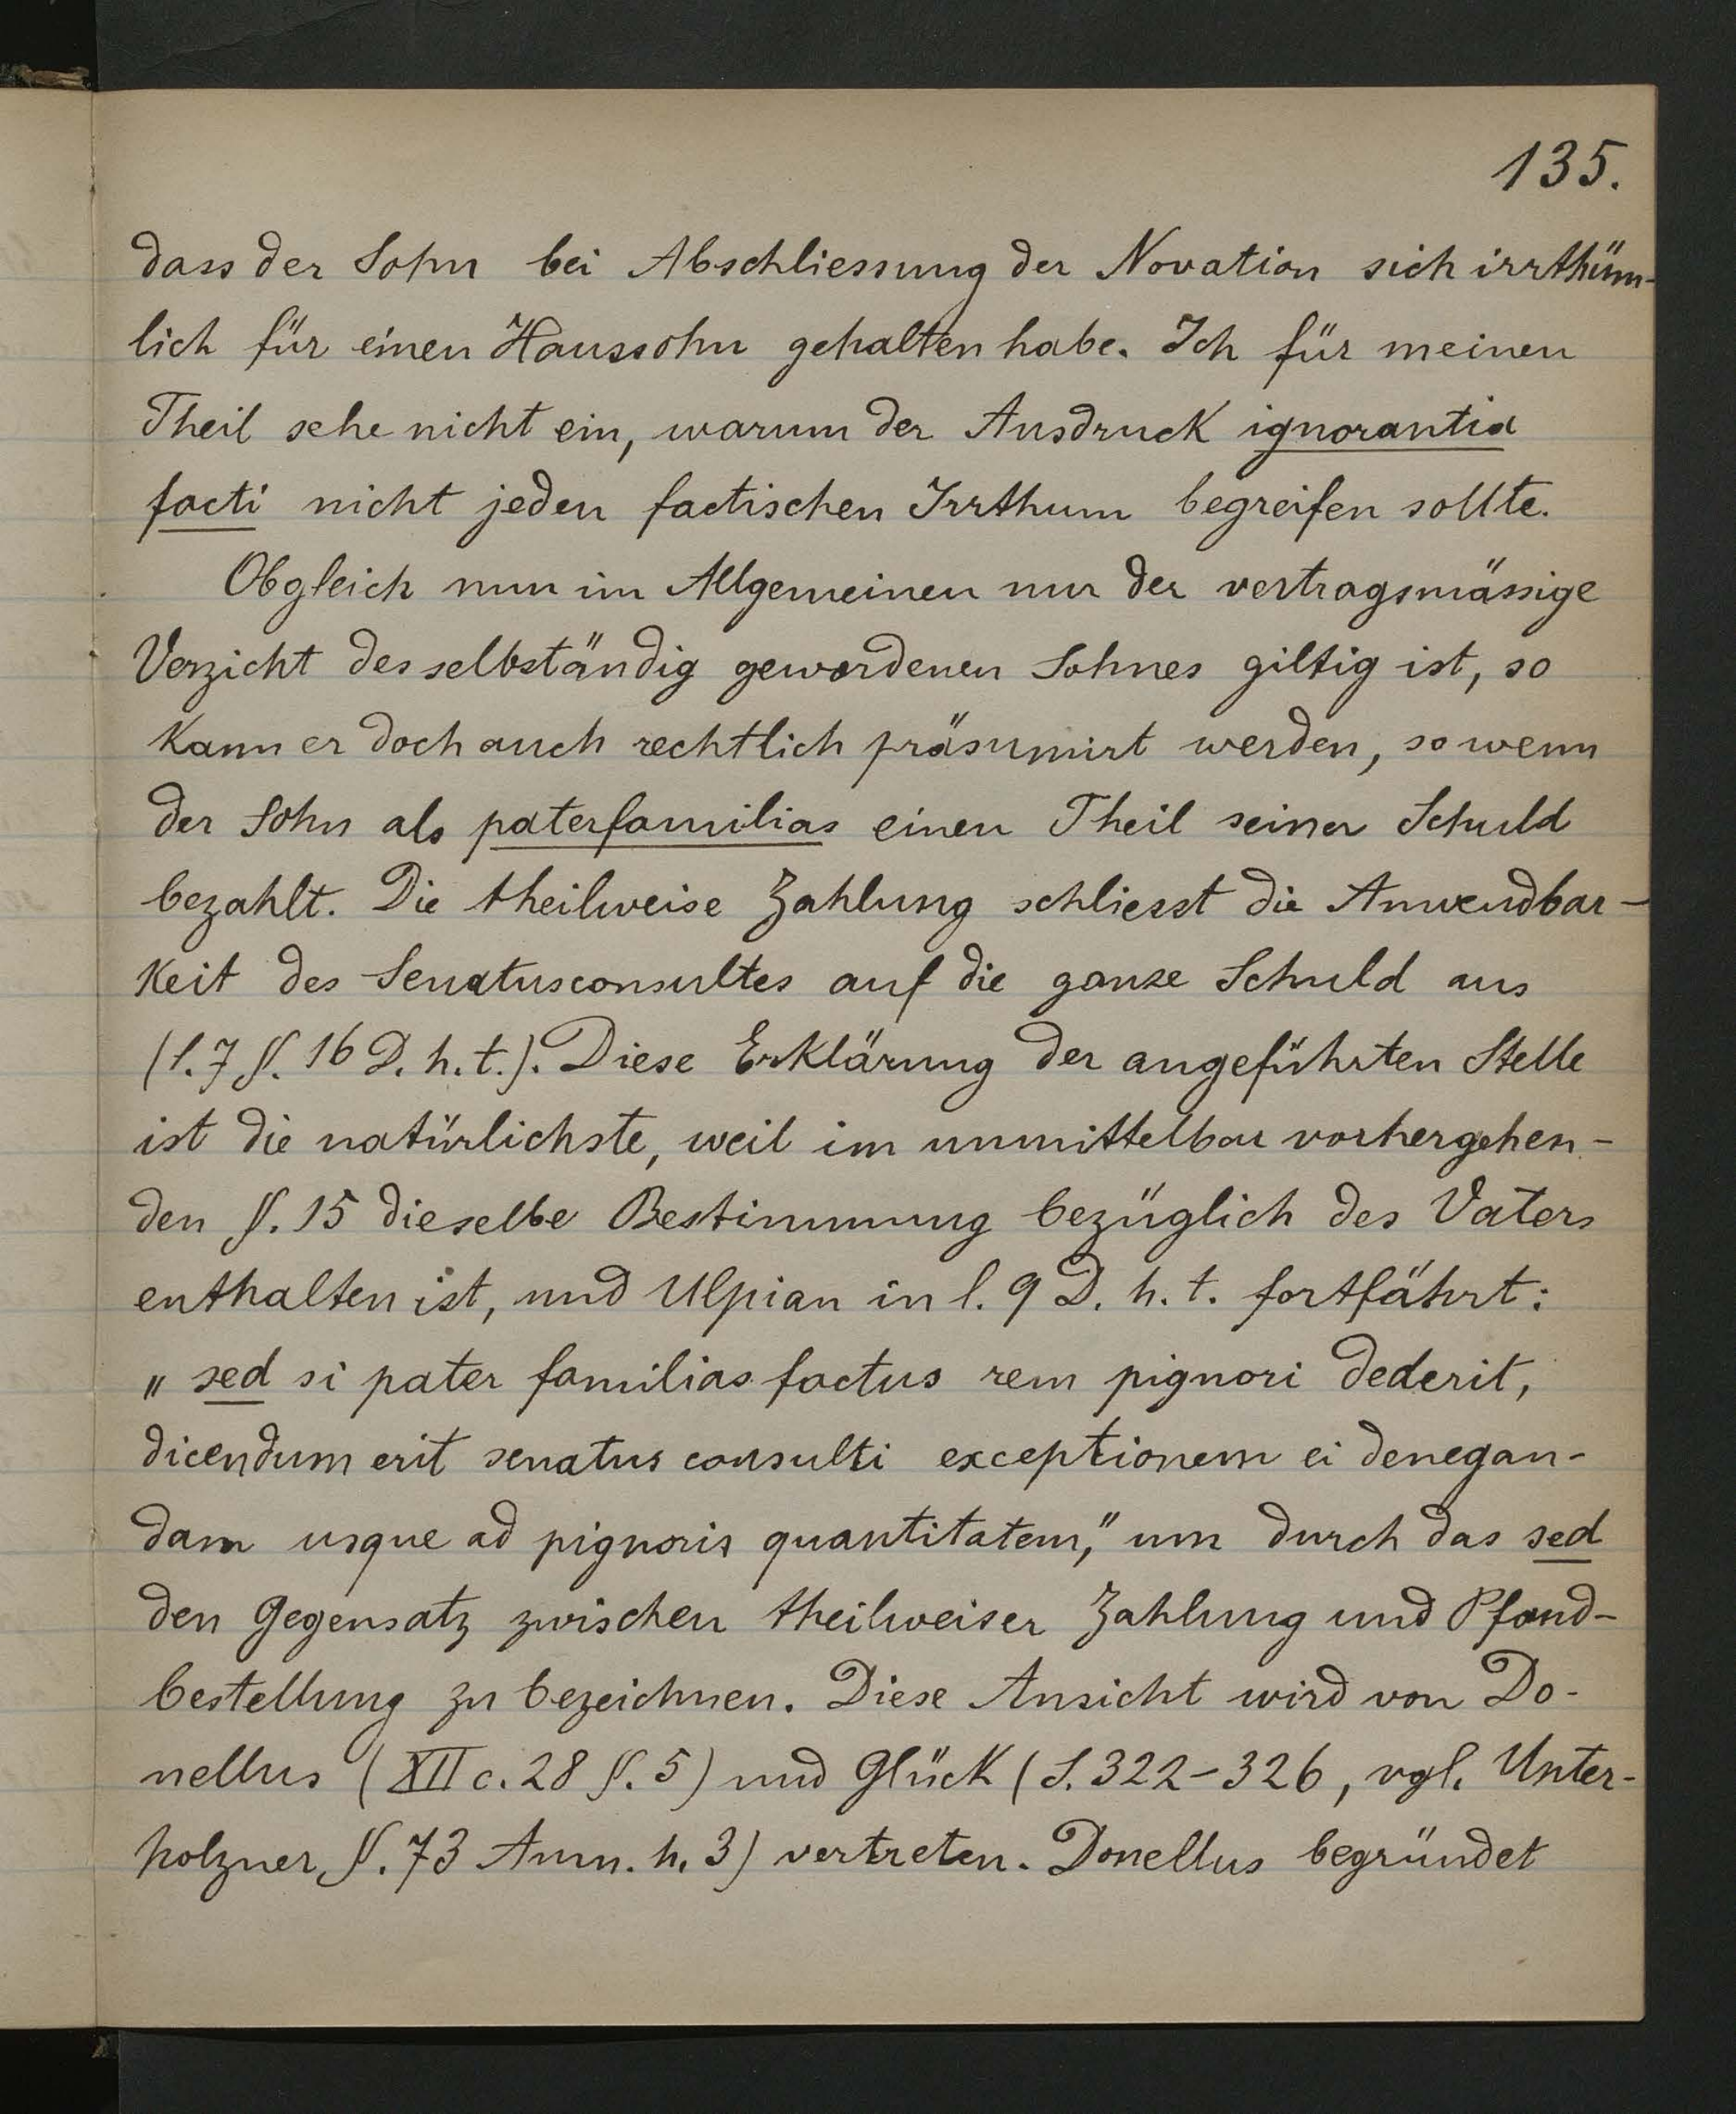 135.
dass der Sohn bei Abschliessung der Novation sich irrthüm-
lich für einen Haussohn gehalten habe. Ich für meinen
Theil sehe nicht ein, warum der Ausdruck ignorantia
facti nicht jeden factischen Irrthum begreifen sollte.
Obgleich nun im Allgemeinen nur der vertragsmässige
Verzicht des selbständig gewordenen Sohnes giltig ist, so
kann er doch auch rechtlich präsumirt werden, so wenn
der Sohn als paterfamilias einen Theil seiner Schuld
bezahlt. Die theilweise Zahlung schliesst die Anwendbar-
keit des Senatusconsultes auf die ganze Schuld aus
(l. 7 §. 16 D. h. t.). Diese Erklärung der angeführten Stelle
ist die natürlichste, weil im unmittelbar vorhergehen-
den §. 15 dieselbe Bestimmung bezüglich des Vaters
enthalten ist, und Ulpian in l. 9 D. h. t. fortfährt:
„sed si pater familias factus rem pignori dederit,
dicendum erit senatus consulti exceptionem ei denegan-
dam usque ad pignoris quantitatem," um durch das sed
den Gegensatz zwischen theilweiser Zahlung und Pfand-
bestellung zu bezeichnen. Diese Ansicht wird von Do-
nellus (XII c. 28 §. 5) und Glück (S. 322-326, vgl. Unter-
holzner §. 73 Anm. h. 3) vertreten. Donellus begründet